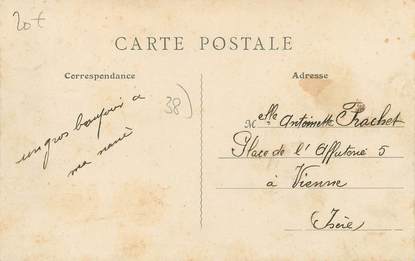 20€
CARTE POSTALE
Correspondance
Adresse
38)
un gros bonjour à
ma
Melle Antoinette Frachet
Place de l'Affuterie 5
à Vienne
(Isère)